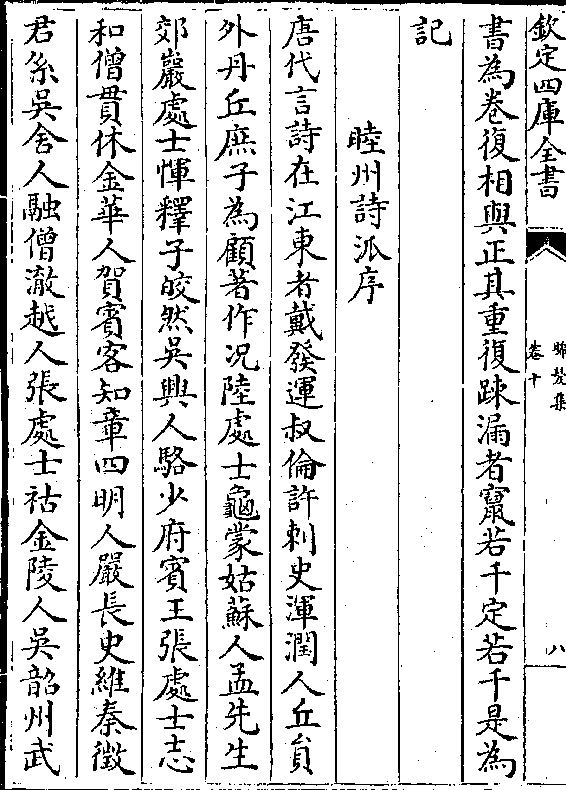 欽定四庫全書
晞髮集
卷十
八
書為卷復相與正其重復踈漏者竄若干定若干是為
記
睦州詩派序
唐代言詩在江東者戴發運叔倫許刺史渾潤人丘員
外丹丘庶子為顧著作况陸處士龜蒙姑蘇人孟先生
郊嚴處士惲釋子皎然吳興人駱少府賓王張處士志
和僧貫休金華人賀賓客知章四明人嚴長史維秦徵
君系吳舍人融僧澈越人張處士祜金陵人吳韶州武